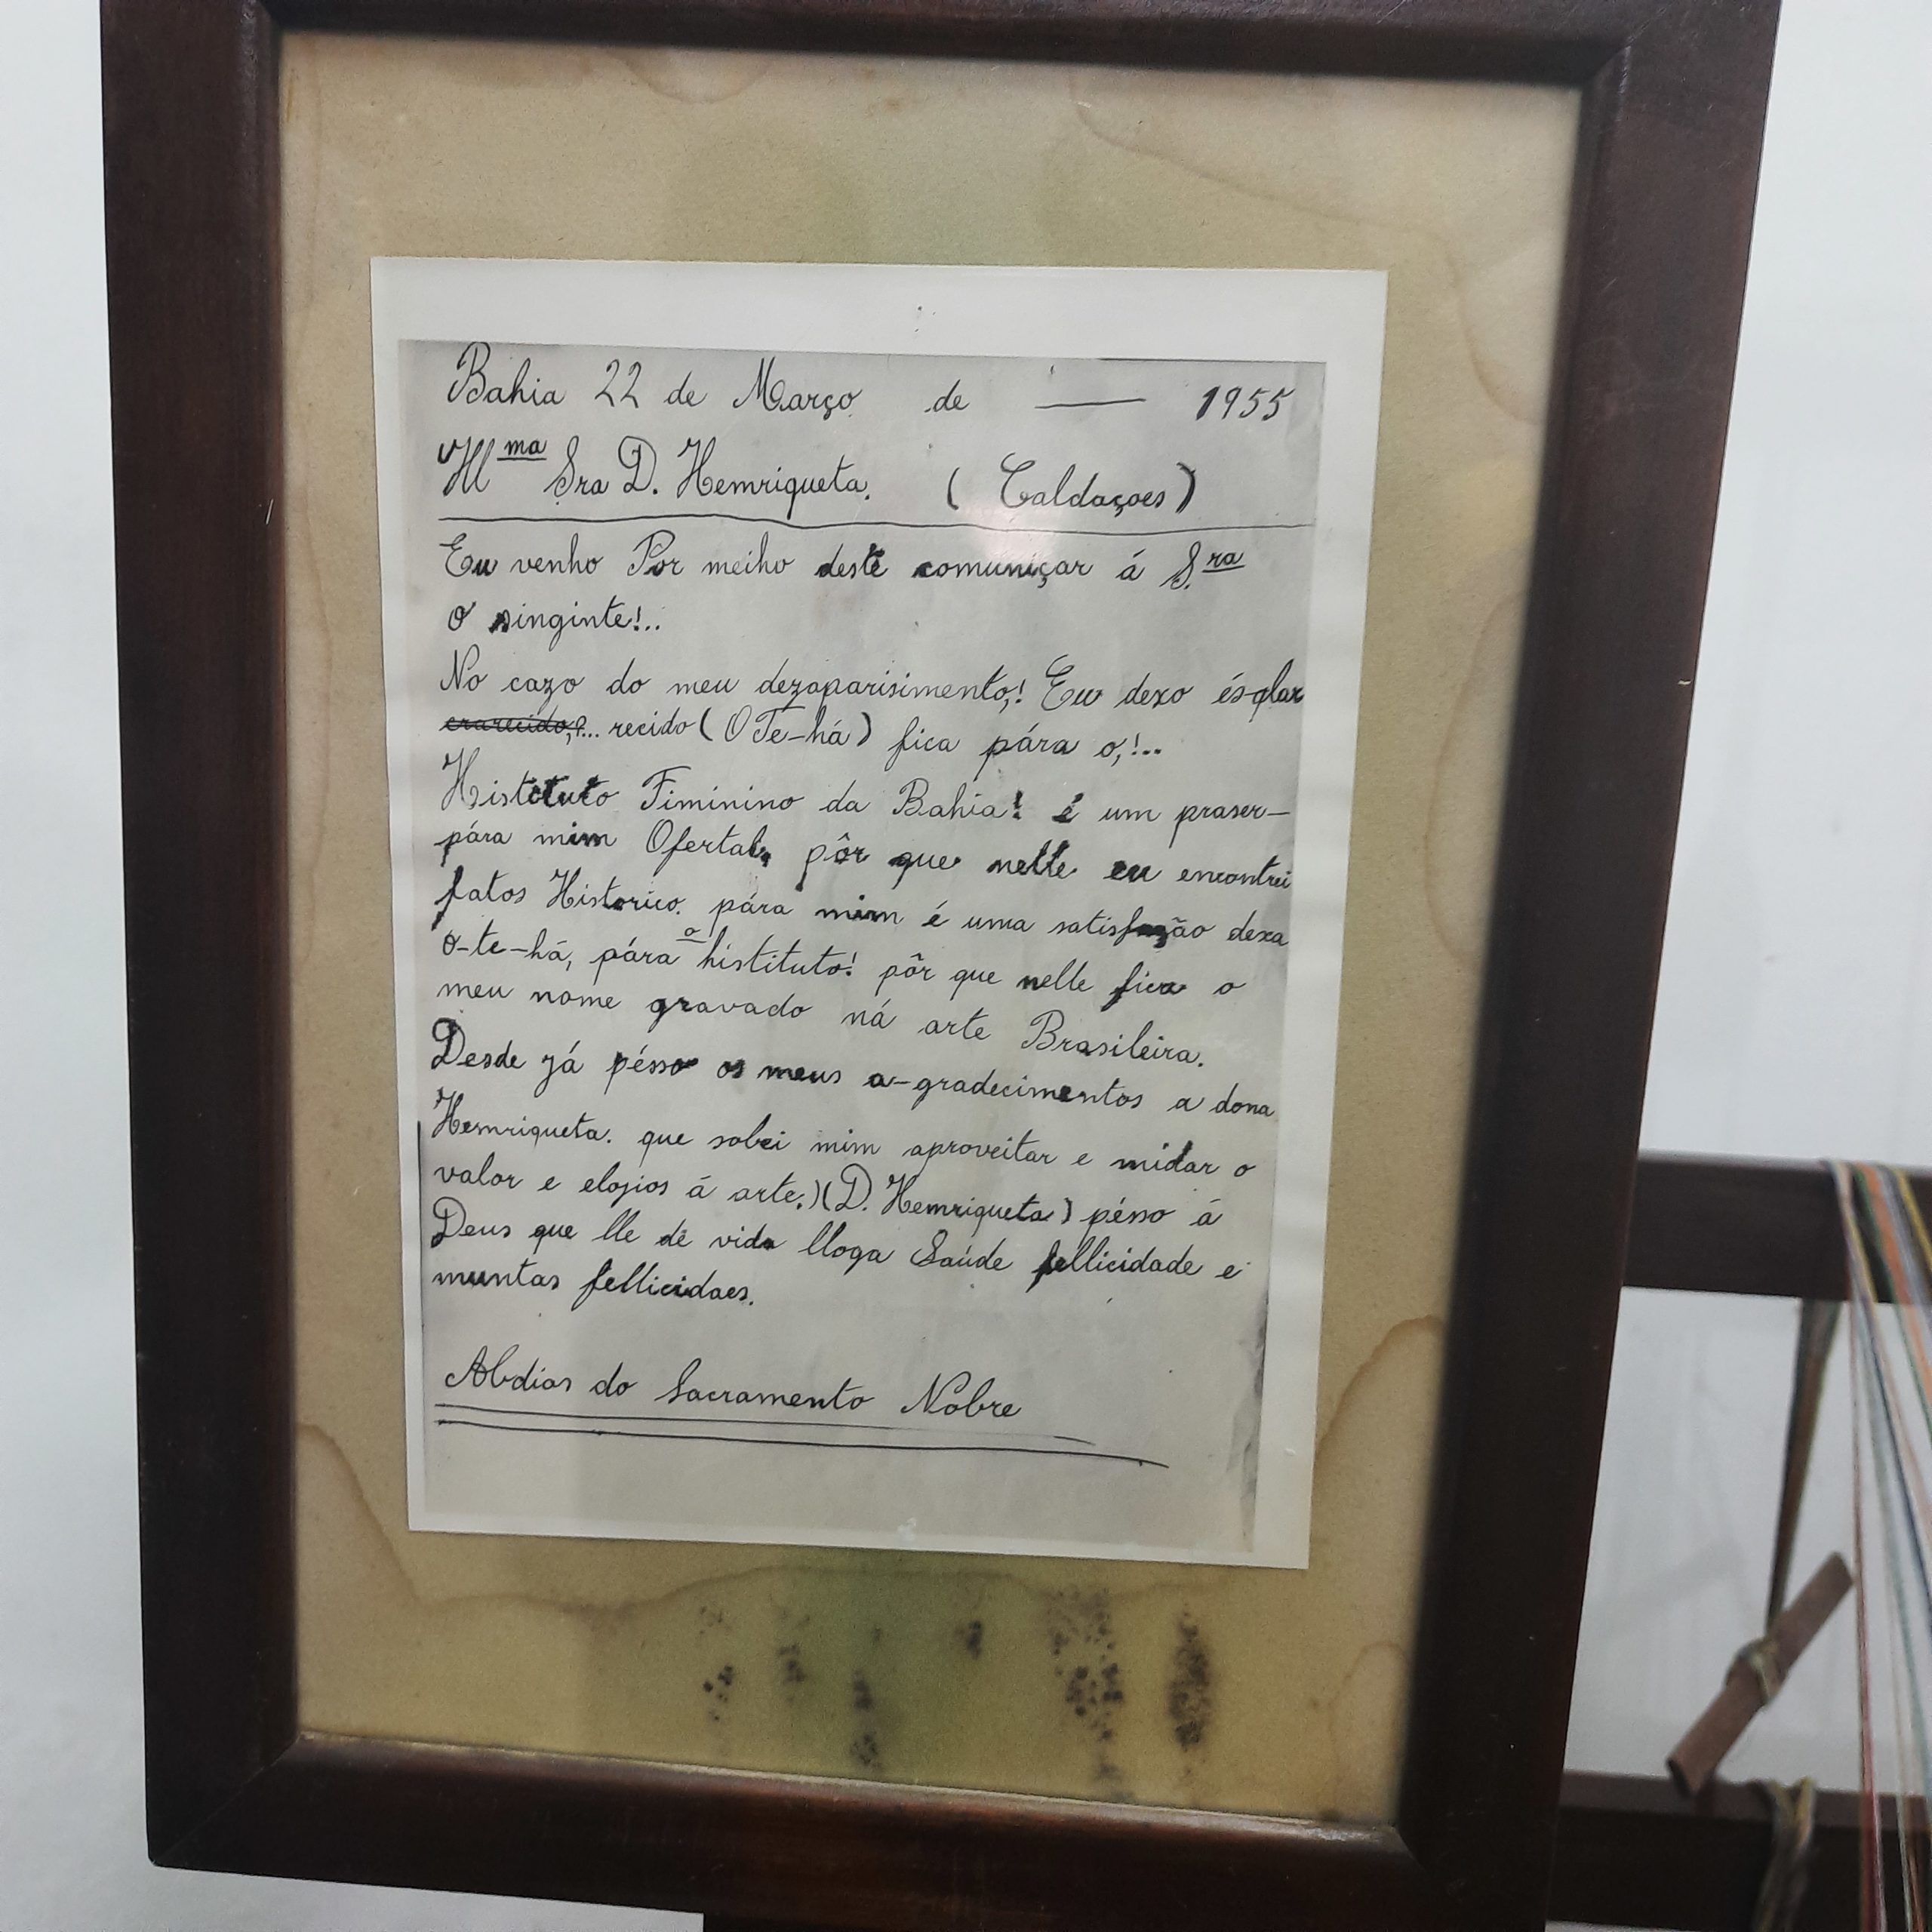 Bahia 22 de Março de —— 1955
Illma Sra D. Hemriqueta. (Caldaçoes)
Eu venho Por meiho deste comuniçar á S.ra
O singinte!..
No cazo do meu dezaparisimento,! Eu dexo és-clar
crarecido,?... recido (O Te-há) fica pára o,!..
Histituto Fiminino da Bahia! é um praser-
pára mim Ofertal, pôr que nelle eu encontrei
fatos Historico. pára mim é uma satisfação dexa
o-te-há, pára o histituto! pôr que nelle fica o
meu nome gravado ná arte Brasileira.
Desde já pésso os meus a-gradecimentos a dona
Hemriqueta. que sobei mim aproveitar e midar o
valor e elojios á arte.) (D. Hemriqueta) pésso á
Deus que lle dê vida lloga Saúde fellicidade e
muntas fellicidaes.
Abdias do Sacramento Nobre